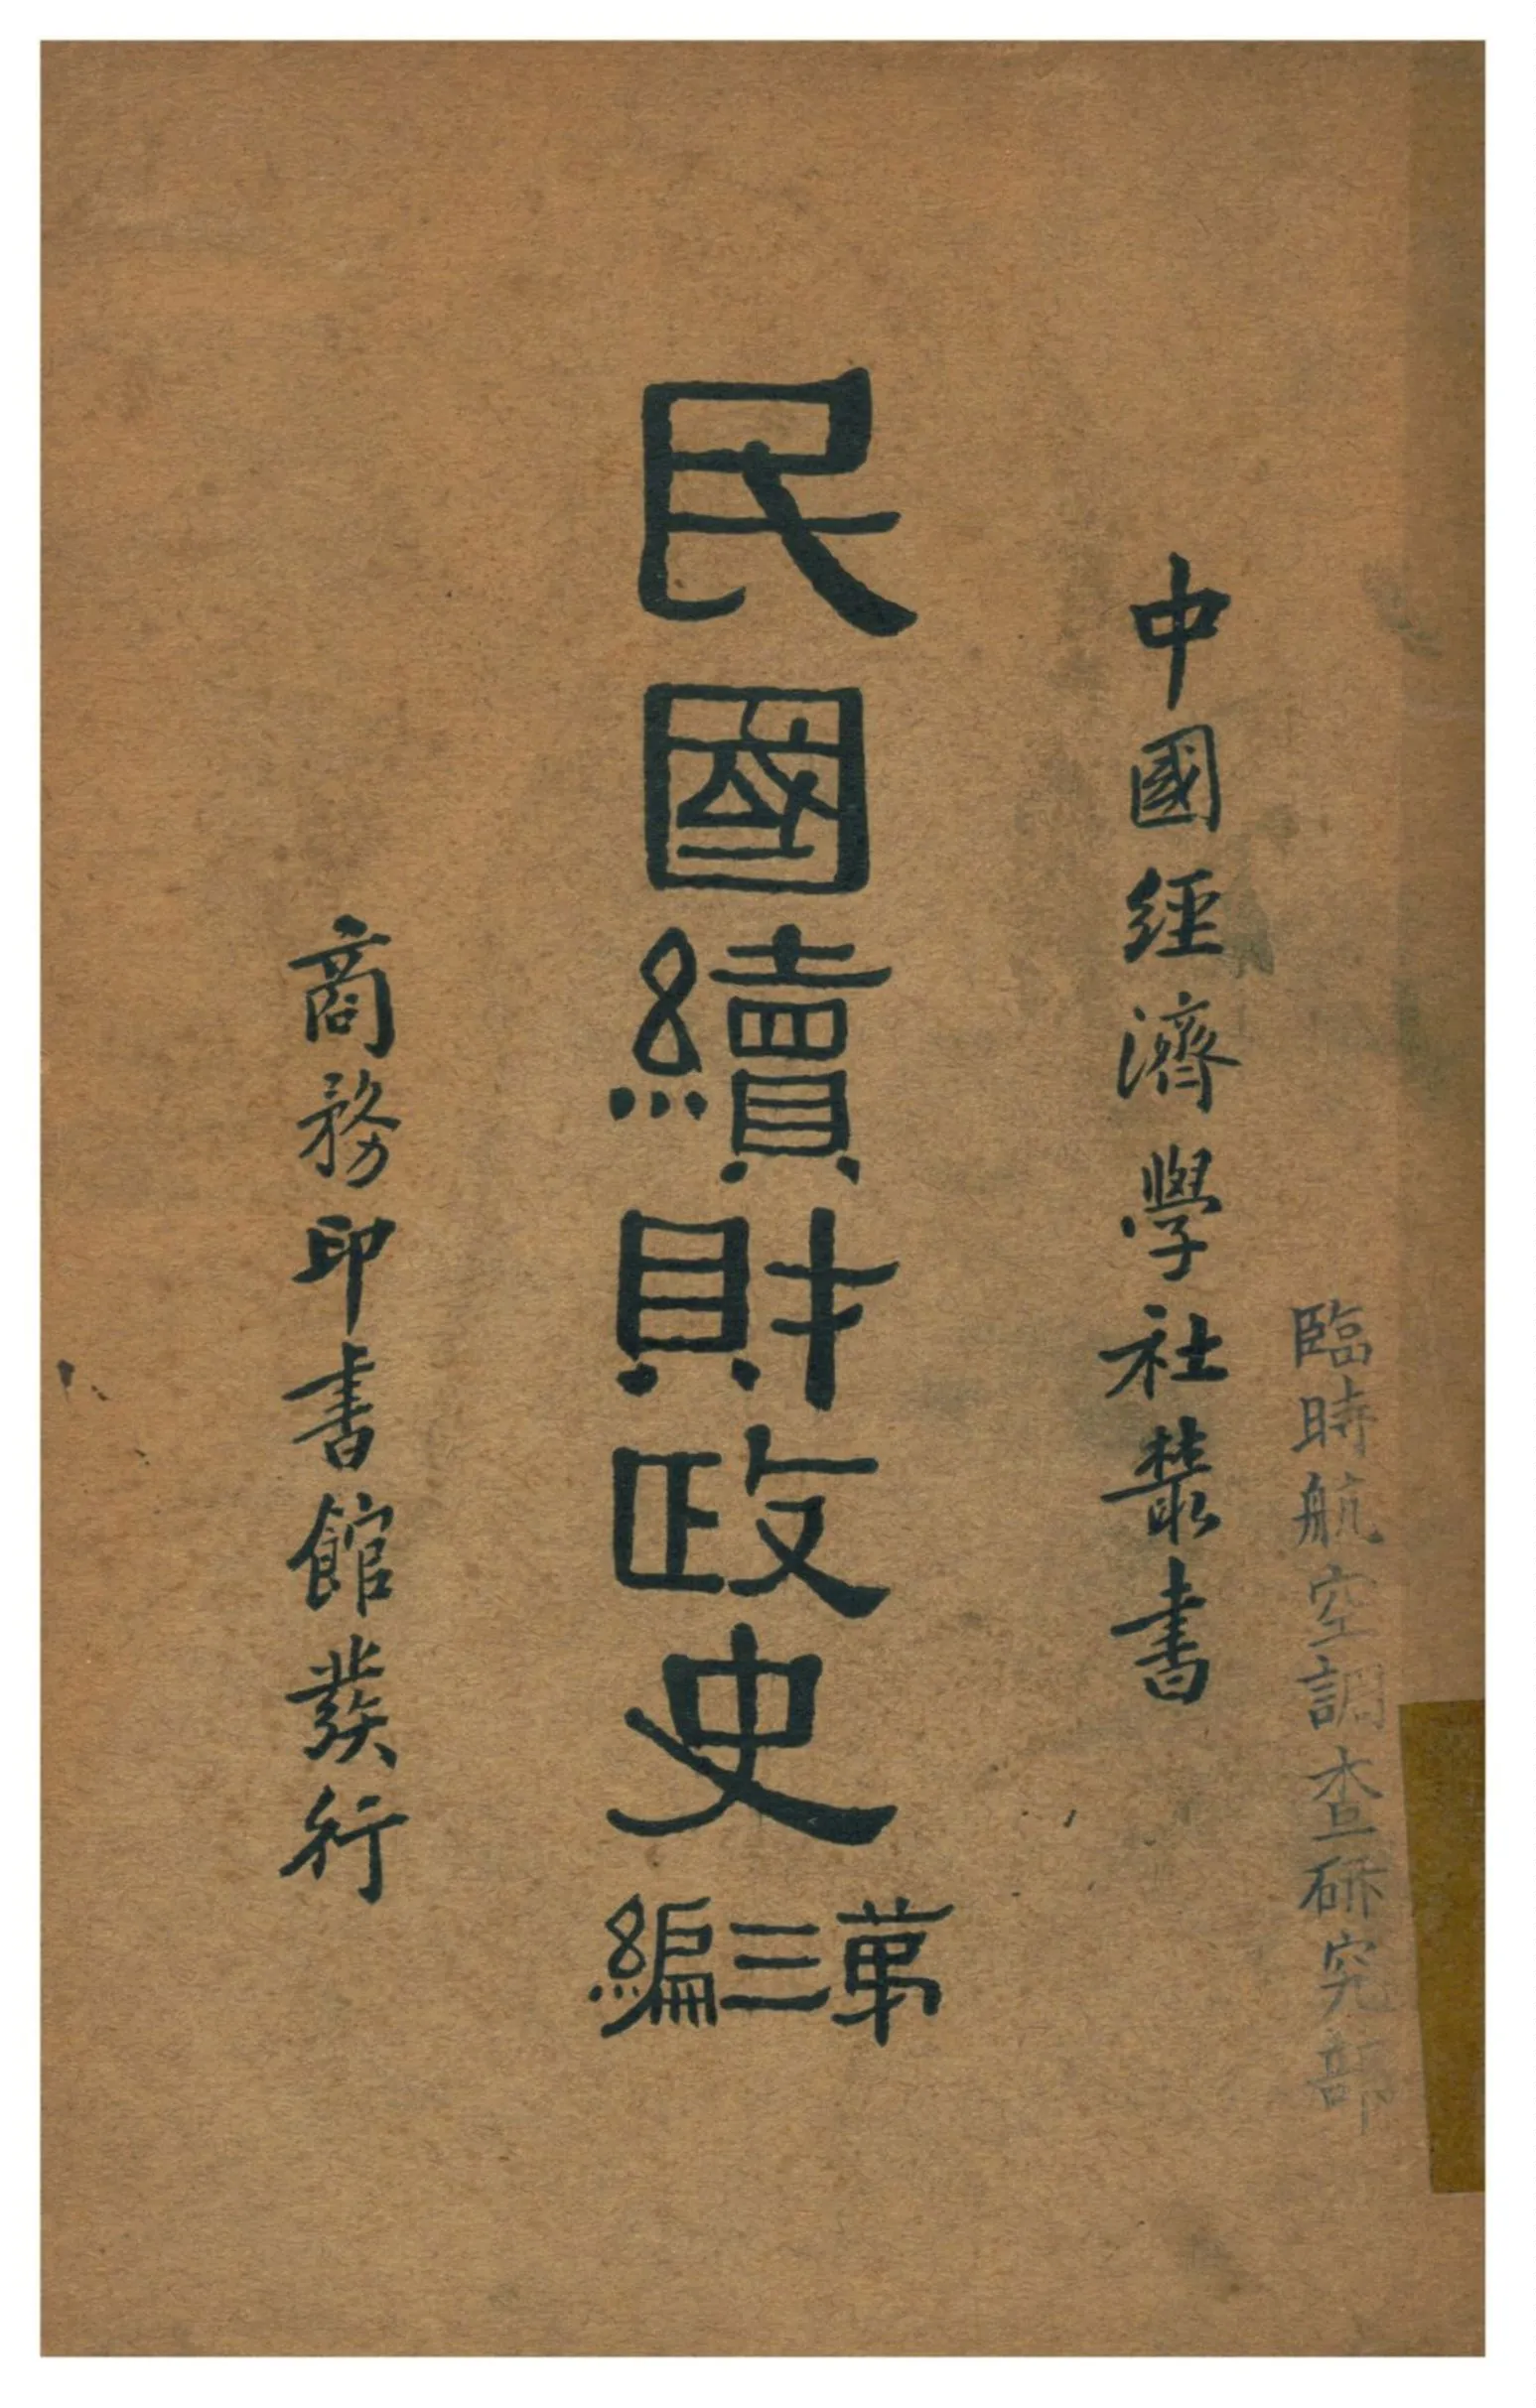 臨時航空調查研究部
中國經濟學社叢書
民國續財政史
第三編
商務印書館發行